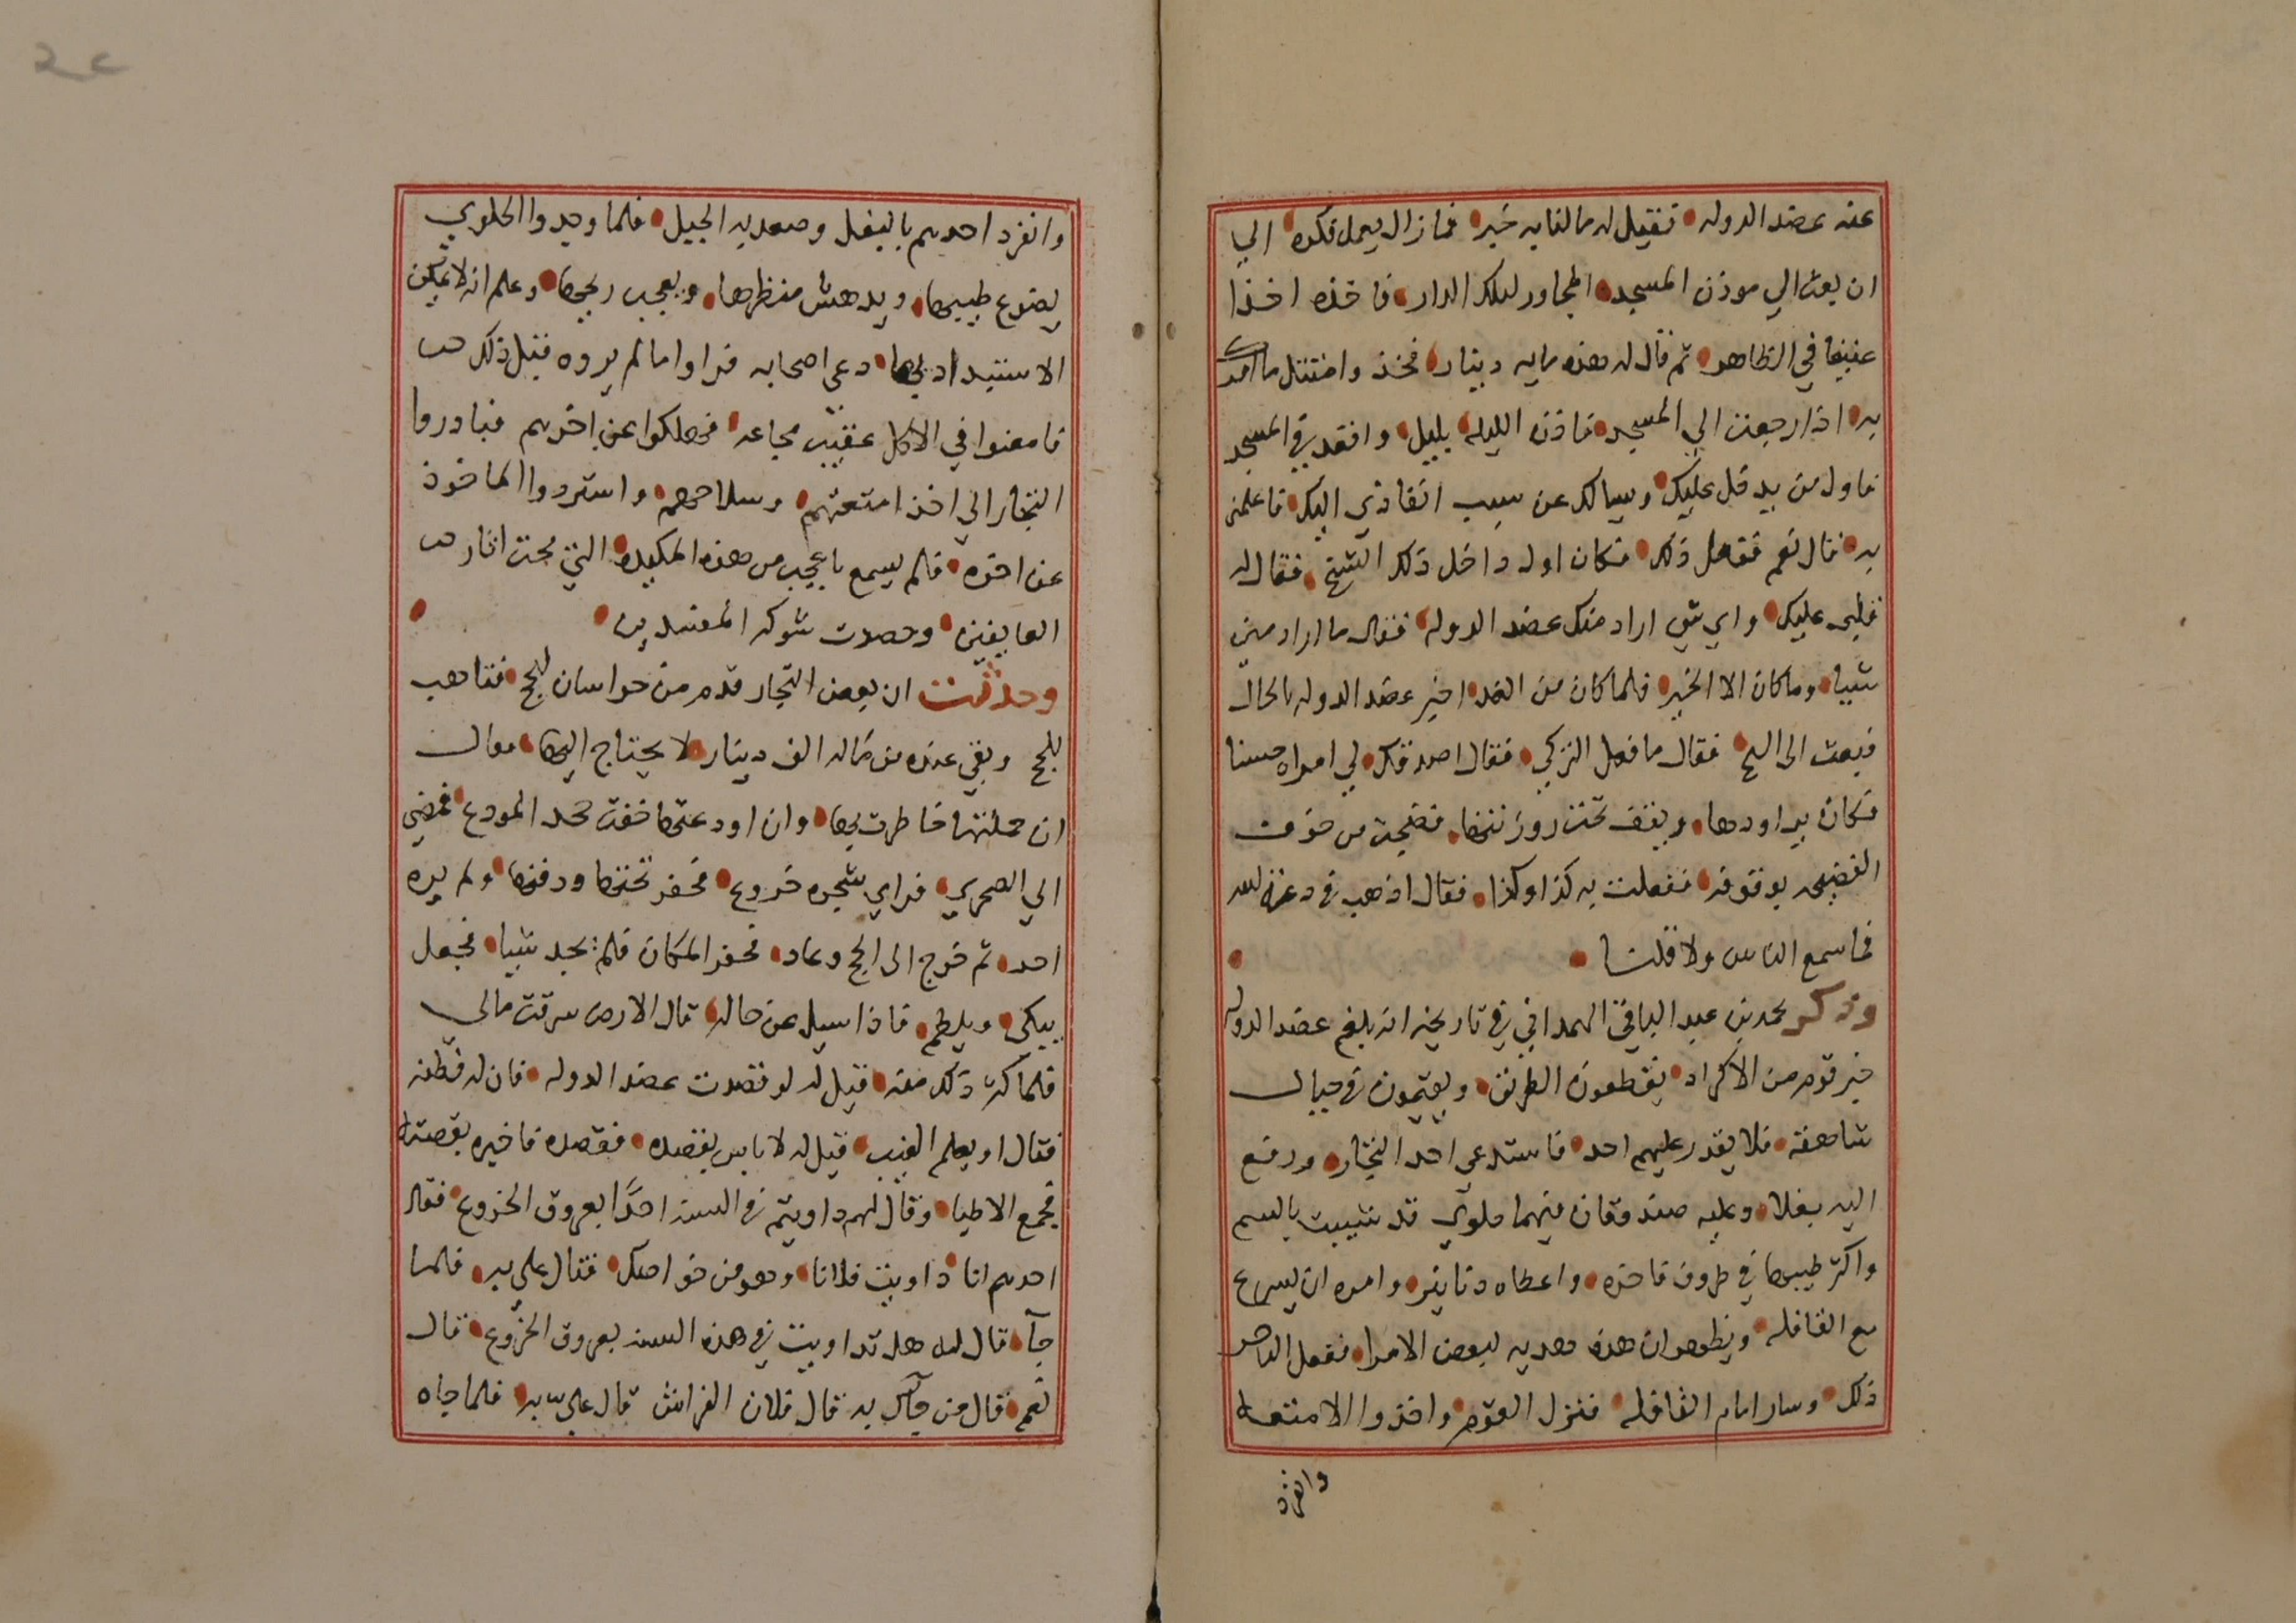 عنه عضد الدوله فقيل له مالنا به خبر فمازال يعمل فكره الي
ان بعث الي موذن المسجد المجاور لتلك الدار فاخذه اخذا
عنيفا في الظاهر ثم قال له هذه مايه دينار فخذ وامتثل ما امرتك
به اذا رجعت الي المسجد فاذن الليله بليل واقعد في المسجد
فاول من يدخل عليك ويسالك عن سبب انفاذي اليك فاعلمني
به فقال نعم ففعل ذلك فكان اول داخل ذلك الشيخ فقال له
قلبي عليك واي شي اراد منك عضد الدوله فقال ما اراد مني
شيا وما كان الا الخير فلما كان من الغد اخبر عضد الدوله بالحال
فبعث الى الشيخ فقال ما فعل التركي فقال اصدقك لي امراه حسنا
فكان يراودها ويقف تحت روزنتها فضجت من خوف
الفضيحه بوقوفه ففعلت به كذا وكذا فقال اذهب في دعة الله
فما سمع الناس ولا قلنا
وذكر محمد بن عبد الباقي الهمداني في تاريخه انه بلغ عضد الدوله
خبر قوم من الاكراد يقطعون الطريق ويقيمون في جبال
شاهقه فلا يقدر عليهم احد فاستدعي احد التجار ودفع
اليه بغلا وعليه صندوقان فيهما حلوي قد شيبت بالسم
واكثر طيبها في ظروف فاخره واعطاه دنانير وامره ان يسرع
مع القافله ويظهر ان هذه هديه لبعض الامرا ففعل التاجر
ذلك وسار امام القافله فنزل القوم واخذوا الامتعه
وانفرد
وانفرد احدهم بالبغل وصعد به الجبل فلما وجدوا الحلوي
يضوع طيبها ويدهش منظرها ويعجب ريحها وعلم انه لا يمكن
الاستبداد بها دعي اصحابه فراوا ما لم يروه قبل ذلك
فامعنوا في الاكل عقيب مجاعه فهلكوا عن اخرهم فبادروا
التجار الي اخذ امتعتهم وسلاحهم واستردوا الماخوذ
عن اخره فلم يسمع باعجب من هذه المكيده التي محت اثار
العايفين وحصدت شوكه المفسدين
وحدثت ان بعض التجار قدم من خراسان للحج فتاهب
للحج وبقي عنده من ماله الف دينار لا يحتاج اليها فقال
ان حملتها خاطرت بها وان اودعتها خفت جحد المودع فمضي
الي الصحري فراي شجره خروع فحفر تحتها ودفنها ولم يره
احد ثم خرج الى الحج وعاد فحفر المكان فلم يجد شيا فجعل
يبكي ويلطم فاذا سيل عن حاله قال الارض سرقت مالي
فلما كثر ذلك منه فقيل له لو قصدت عضد الدوله فان له فطنه
فقال او يعلم الغيب فقيل له لا باس بقصده فقصده فاخبره بقصته
فجمع الاطبا وقال لهم داويتم في السنه احدًا بعروق الخروع فقال
احدهم انا داويت فلانا وهو من خواصك فقال علي به فلما
جآ قال له هل تداويت في هذه السنه بعروق الخروع قال
نعم قال من جآك به قال فلان الفراش قال علي به فلما جاه